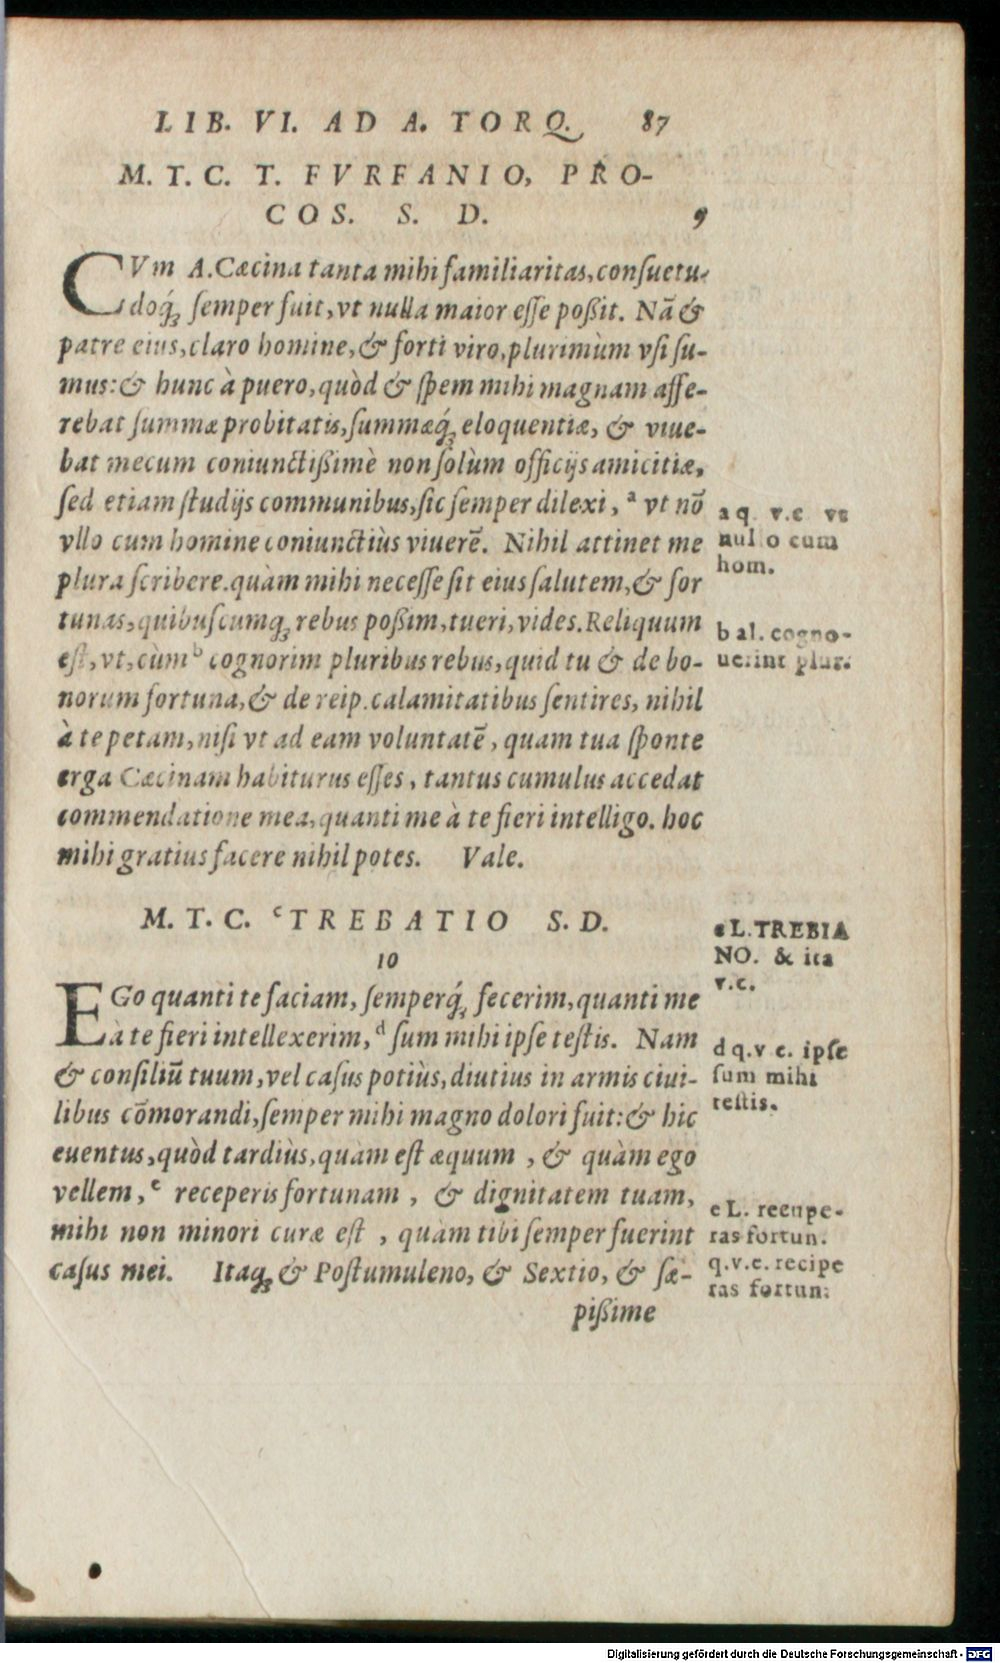 LIB. VI. AD A. TORQ. 87
M. T. C. T. FVRFANIO, PRO-
COS. S. D. 9
CVm A. Cæcina tanta mihi familiaritas, consuetu-
doq́; semper fuit, vt nulla maior esse poßit. Nã &
patre eius, claro homine, & forti viro, plurimùm vsi su-
mus: & hunc à puero, quòd & spem mihi magnam affe-
rebat summæ probitatis, summæq́; eloquentiæ, & viue-
bat mecum coniunctißimè non solùm officijs amicitiæ,
sed etiam studijs communibus, sic semper dilexi, ª vt nõ
vllo cum homine coniunctiùs viuerẽ. Nihil attinet me
plura scribere. quàm mihi necesse sit eius salutem, & for
tunas, quibuscumq; rebus poßim, tueri, vides. Reliquum
est, vt, cùm ᵇ cognorim pluribus rebus, quid tu & de bo-
norum fortuna, & de reip. calamitatibus sentires, nihil
à te petam, nisi vt ad eam voluntatẽ, quam tua sponte
erga Cæcinam habiturus esses, tantus cumulus accedat
commendatione mea, quanti me à te fieri intelligo. hoc
mihi gratius facere nihil potes. Vale.
a q. v.c vt
nullo cum
hom.
b al. cogno-
uerint plur.
M. T. C. ᶜTREBATIO S. D.
10
EGo quanti te faciam, semperq́; fecerim, quanti me
à te fieri intellexerim, ᵈ sum mihi ipse testis. Nam
& consiliũ tuum, vel casus potiùs, diutius in armis ciui-
libus cõmorandi, semper mihi magno dolori fuit: & hic
euentus, quòd tardiùs, quàm est æquum, & quàm ego
vellem, ᵉ receperis fortunam, & dignitatem tuam,
mihi non minori curæ est, quàm tibi semper fuerint
casus mei. Itaq; & Postumuleno, & Sextio, & sæ-
pißime
c L. TREBIA
NO. & ita
v.c.
d q.v c. ipse
sum mihi
testis.
e L. recupe-
ras fortun.
q.v.c. recipe
ras fortun:
Digitalisierung gefördert durch die Deutsche Forschungsgemeinschaft - DFG